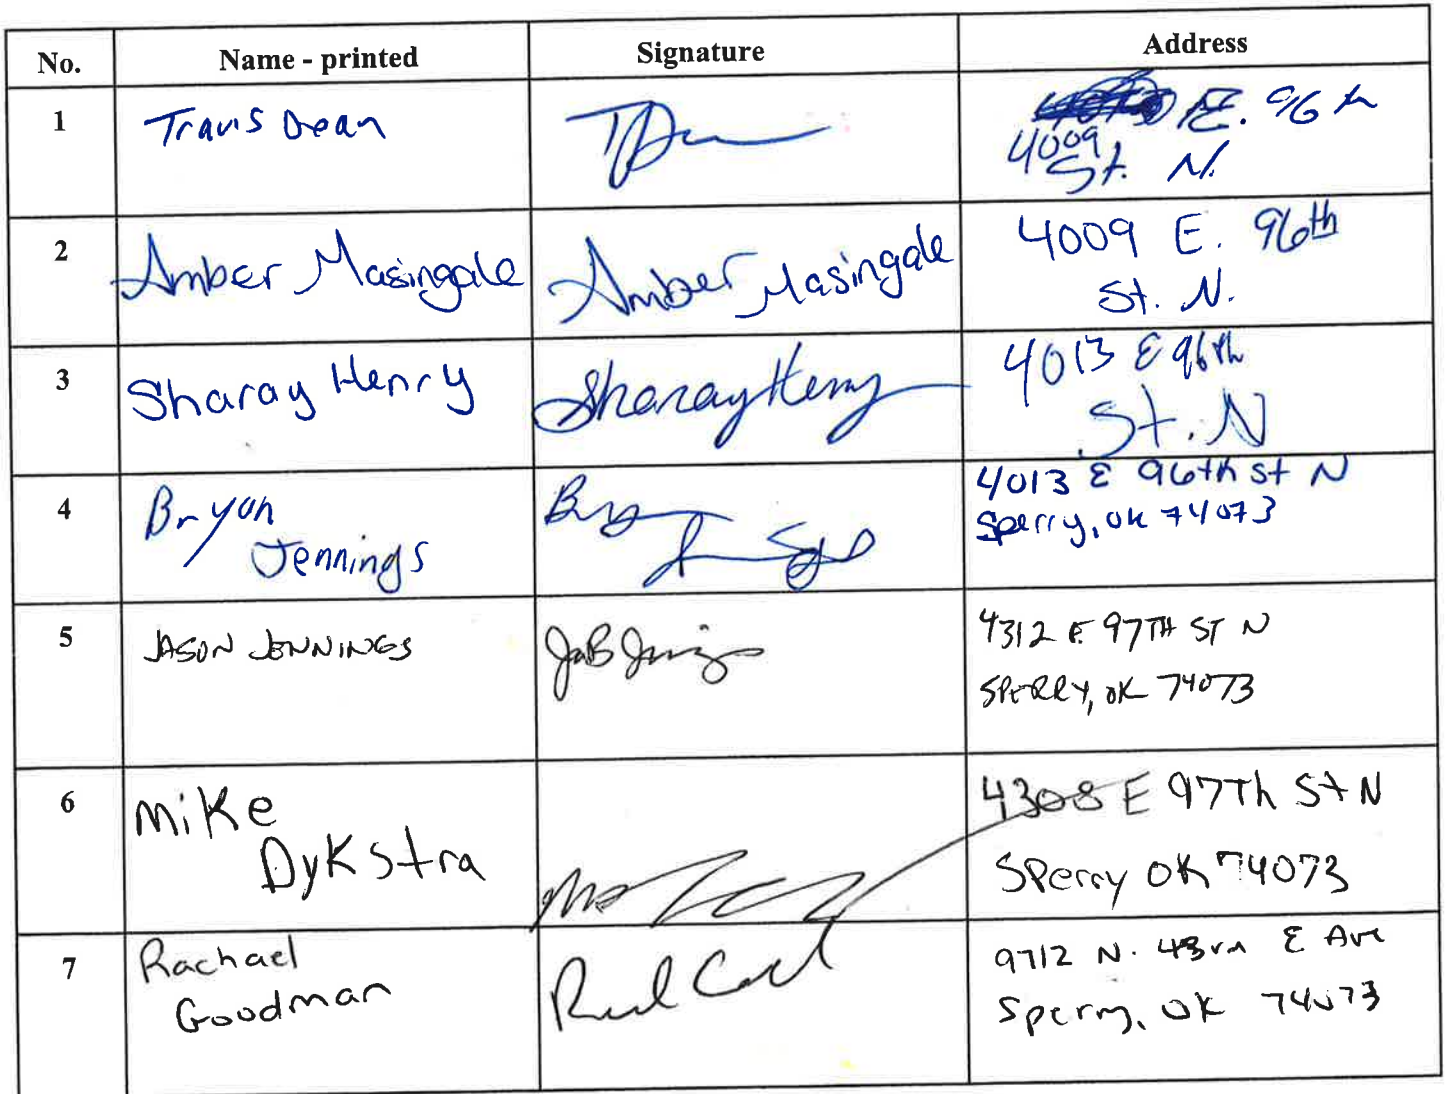 No. Name - printed Signature Address
1 Travis Dean E. 96th
4009
St. N.
2 Amber Masingale Amber Masingale 4009 E. 96th
St. N.
3 Sharay Henry Sharay Henry 4013 E 96th
St. N
4 Bryon
Jennings
4013 E 96th St N
Sperry, OK 74073
5 JASON JENNINGS 4312 E 97TH ST N
SPERRY, OK 74073
6 Mike
Dykstra
4308 E 97Th St N
Sperry OK 74073
7 Rachael
Goodman
9712 N. 43rd E Ave
Sperry, OK 74073